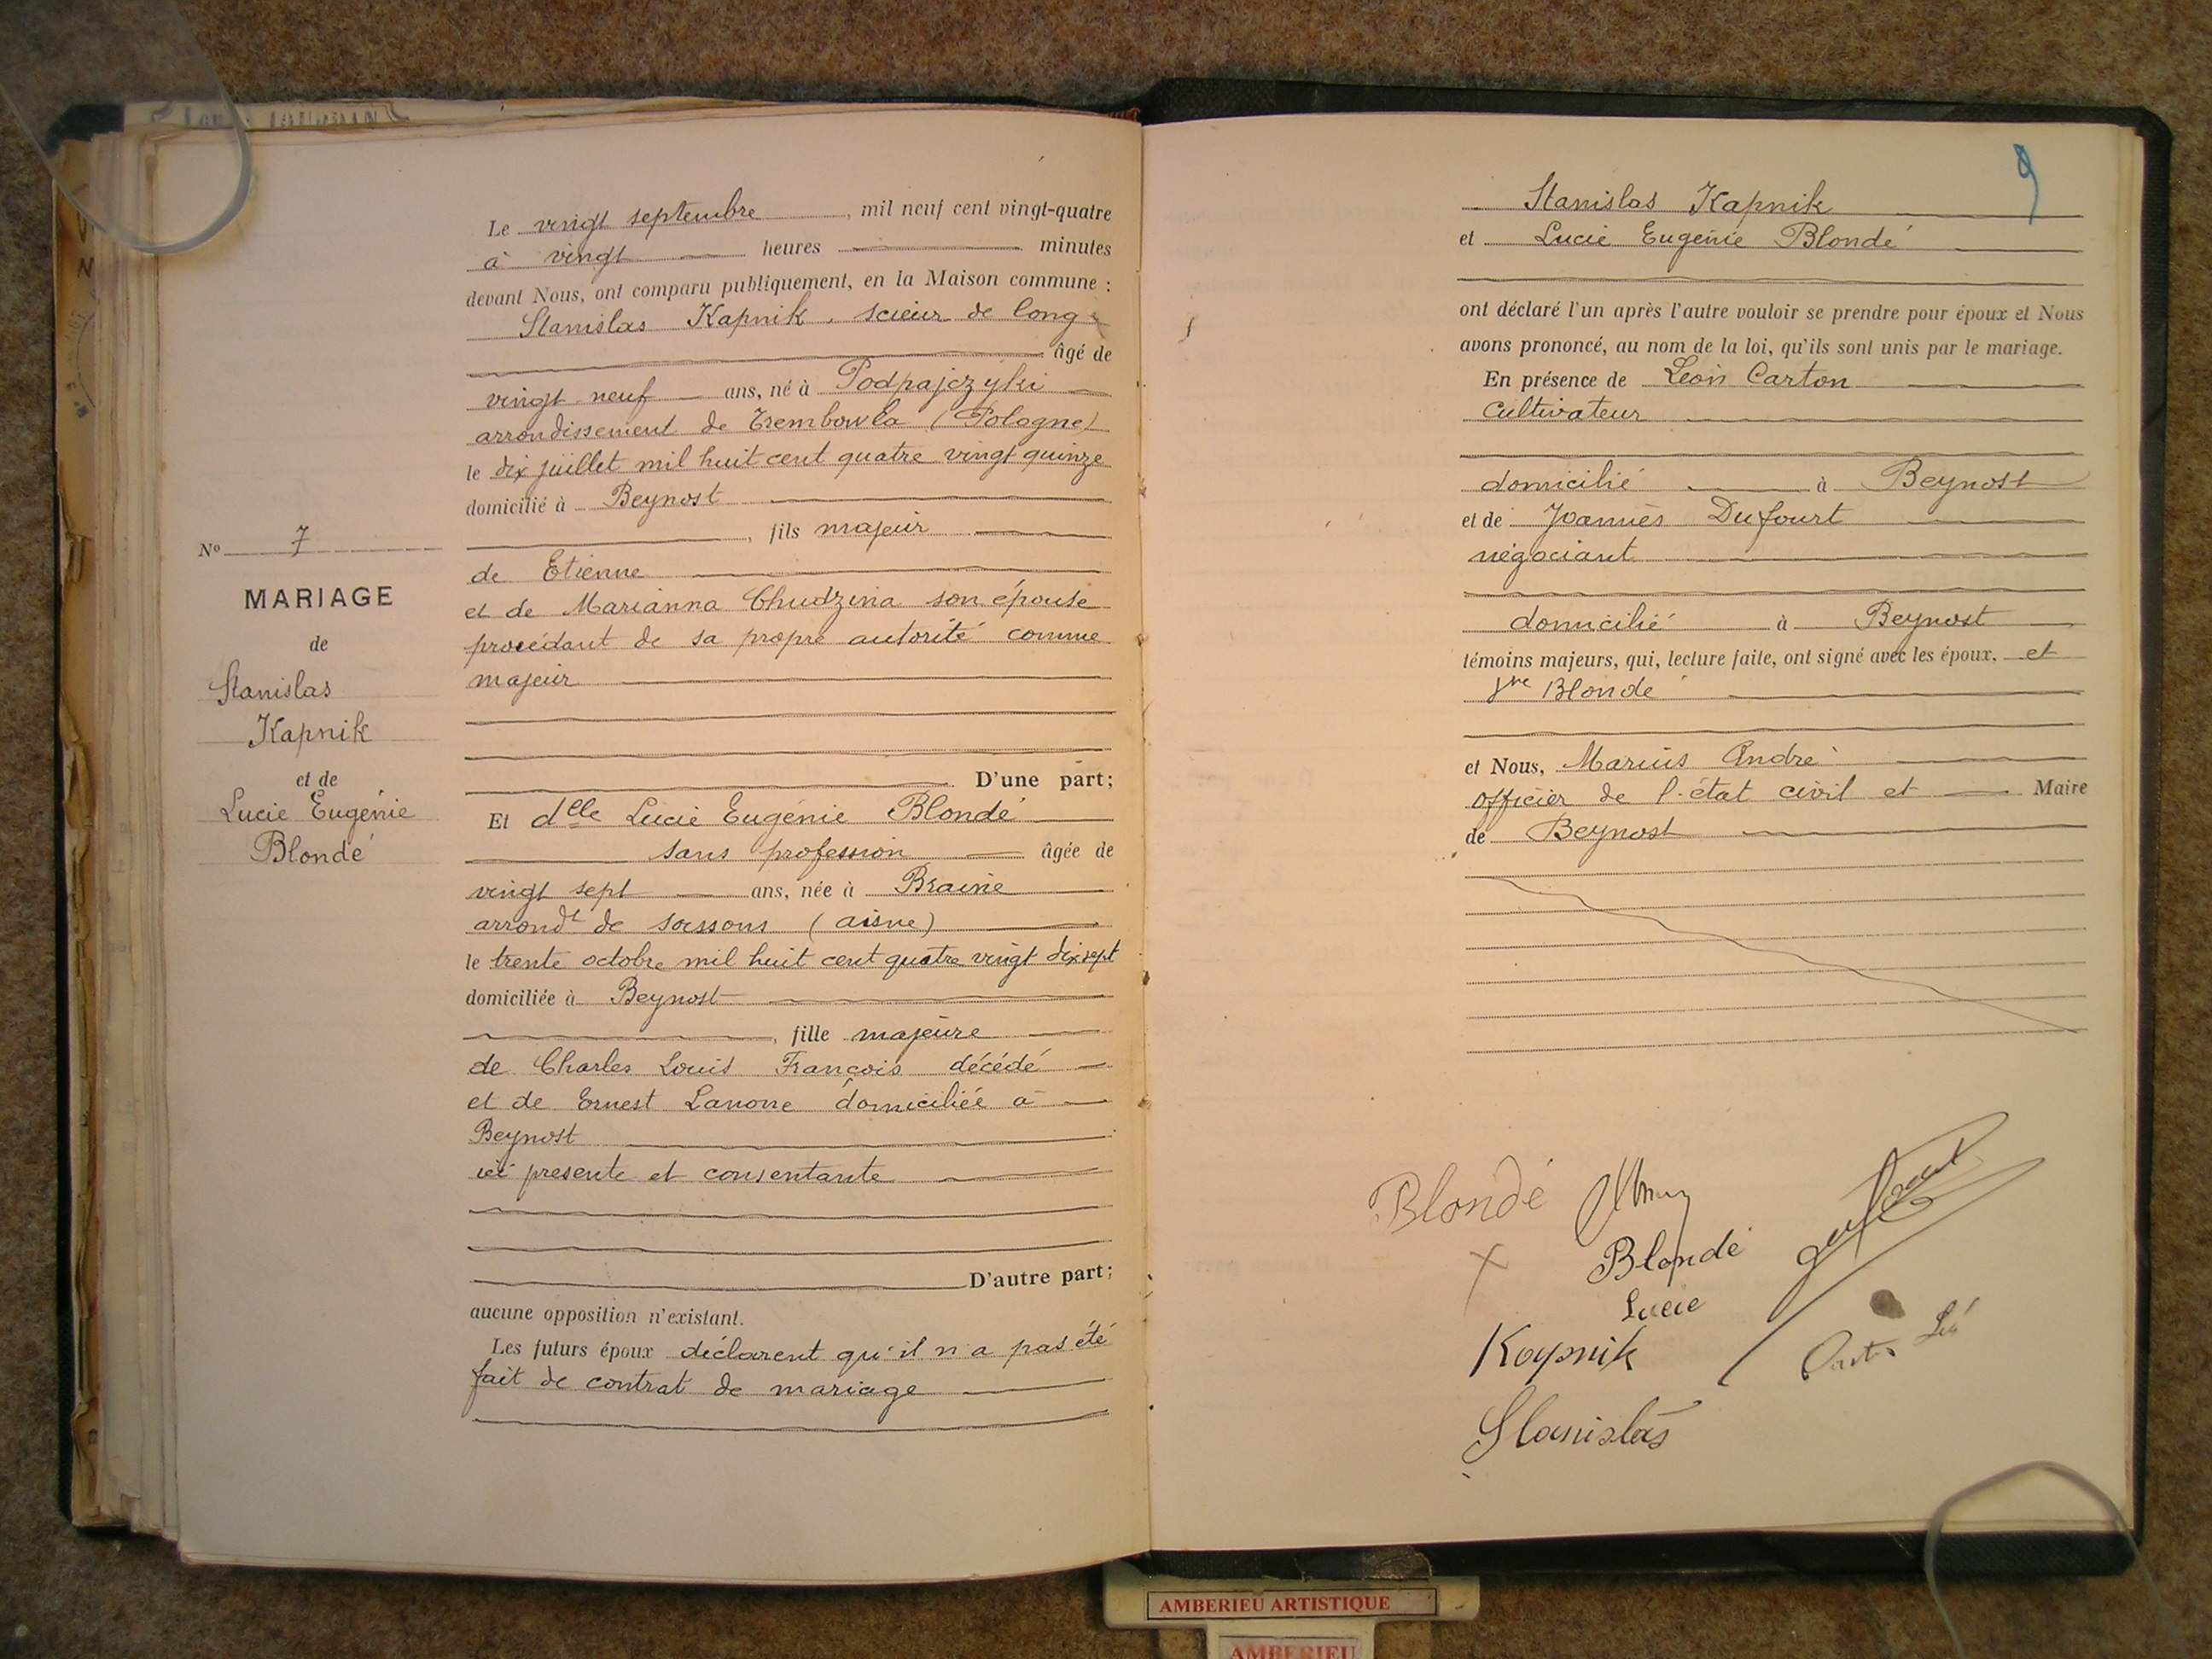 N° 7
MARIAGE
de
Stanislas
Kapnik
et de
Lucie Eugénie
Blondé
Le vingt septembre, mil neuf cent vingt-quatre
à vingt heures minutes
devant Nous, ont comparu publiquement, en la Maison commune :
Stanislas Kapnik, scieur de long
âgé de
vingt neuf ans, né à Podpajczyki
arrondissement de Trembowla (Pologne)
le dix juillet mil huit cent quatre vingt quinze
domicilié à Beynost
, fils majeur
de Etienne
et de Marianna Chudzina son épouse
procédant de sa propre autorité comme
majeur
D'une part;
Et dlle Lucie Eugénie Blondé
sans profession âgée de
vingt sept ans, née à Braine
arrondt de soissons (aisne)
le trente octobre mil huit cent quatre vingt dix sept
domiciliée à Beynost
, fille majeure
de Charles Louis François décédé
et de Ernest Lanone domiciliée à
Beynost
ici présente et consentante
D'autre part;
aucune opposition n'existant.
Les futurs époux déclarent qu'il n'a pas été
fait de contrat de mariage
9
Stanislas Kapnik
et Lucie Eugénie Blondé
ont déclaré l'un après l'autre vouloir se prendre pour époux et Nous
avons prononcé, au nom de la loi, qu'ils sont unis par le mariage.
En présence de Léon Carton
cultivateur
domicilié à Beynost
et de Joannès Dufourt
négociant
domicilié à Beynost
témoins majeurs, qui, lecture faite, ont signé avec les époux. et
Blondé
et Nous, Marius André
officier de l'état civil et Maire
de Beynost
Blondé
Blondé
Lucie
Kapnik
Stanislas
AMBERIEU ARTISTIQUE
AMBERIEU